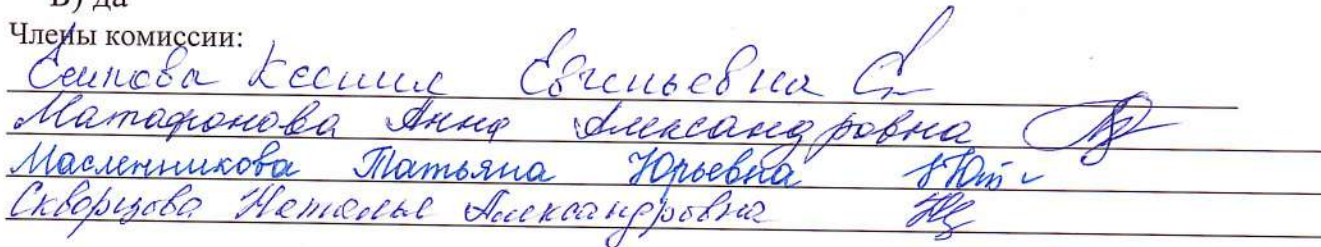 Б) да
Члены комиссии:
Есипова Ксения Евгеньевна
Матафонова Анна Александровна
Масленникова Татьяна Юрьевна
Скворцова Наталья Александровна